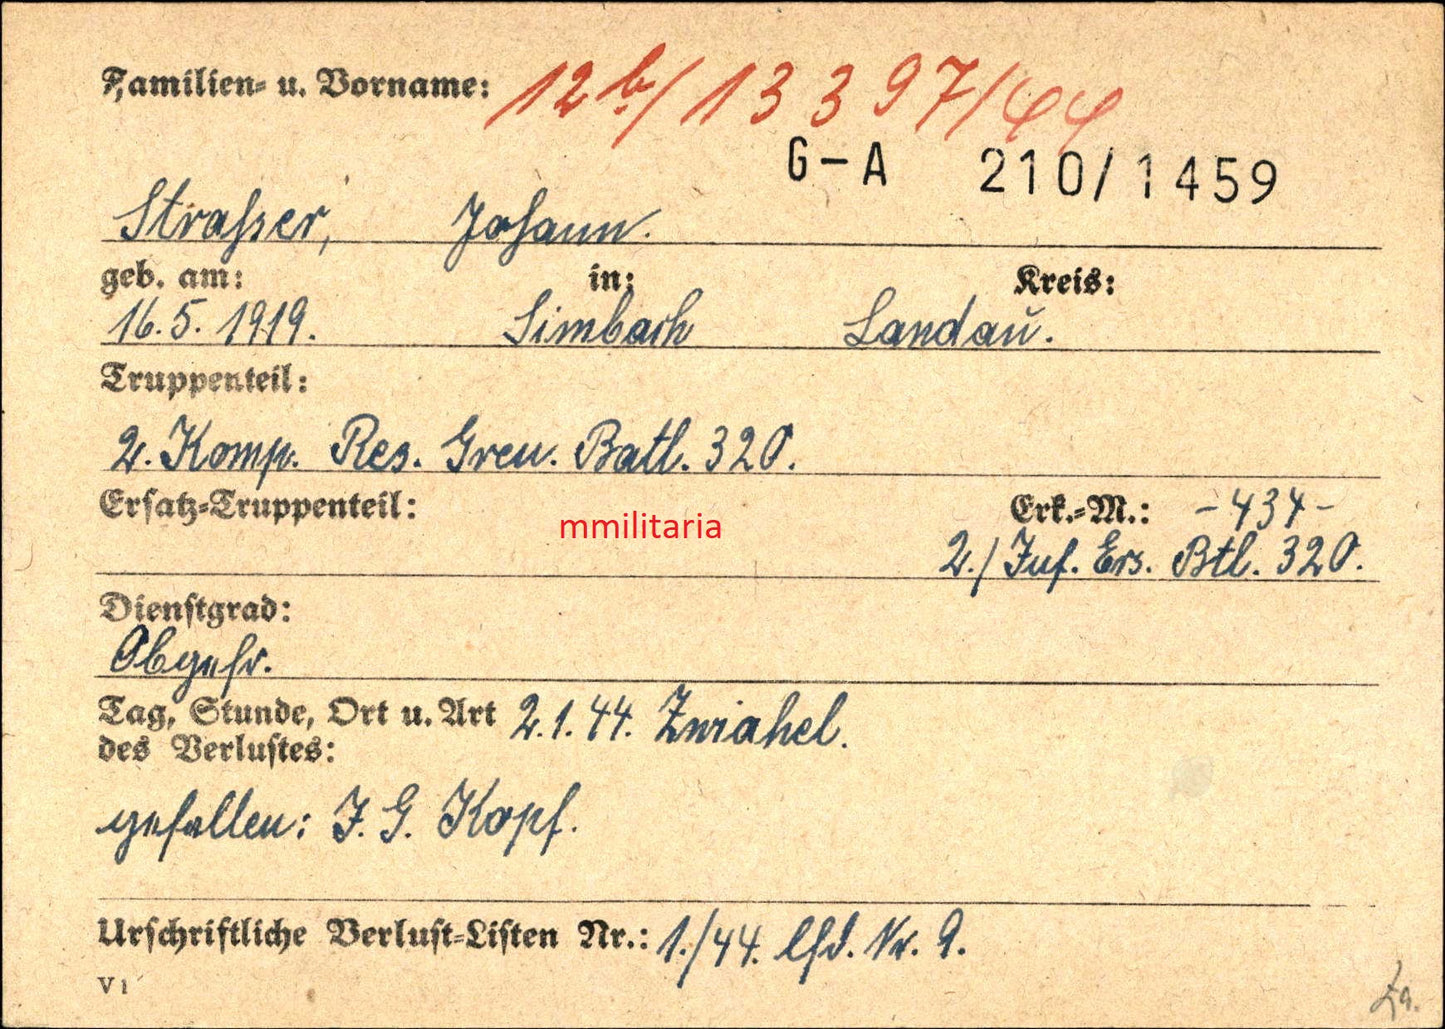 Familien- u. Vorname: 12b/13397/44
G-A 210/1459
Strasser, Johann.
geb. am: in: Kreis:
16.5.1919. Simbach Landau.
Truppenteil:
2. Komp. Res. Gren. Batl. 320.
Ersatz-Truppenteil: Erk.-M.: -434-
mmilitaria
2./Inf. Ers. Btl. 320.
Dienstgrad:
Obgefr.
Tag, Stunde, Ort u. Art 2.1.44. Zwiahel.
des Verlustes:
gefallen: I. G. Kopf.
Urschriftliche Verlust-Listen Nr.: 1./44. lfd. Nr. 9.
V 1